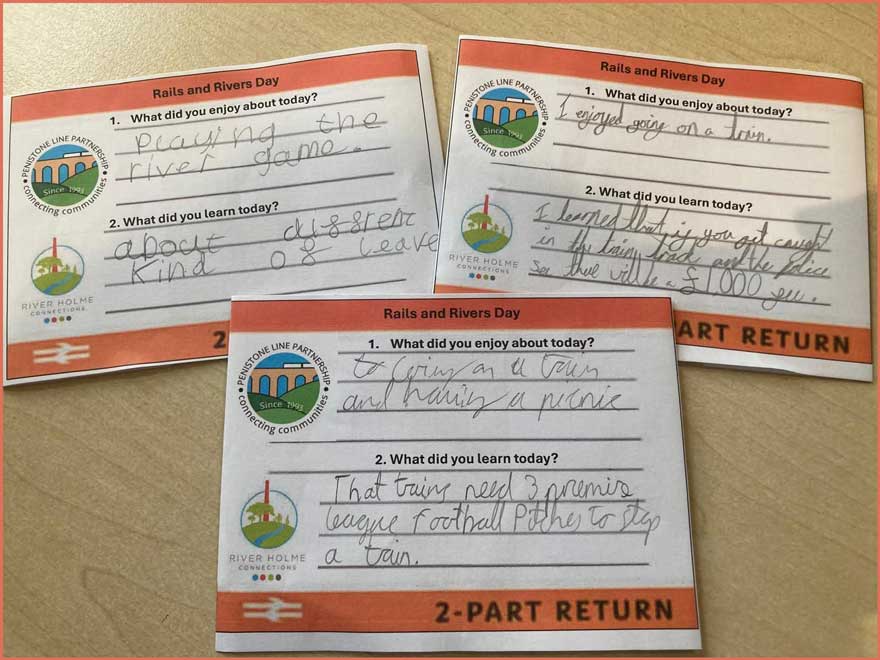 Rails and Rivers Day
1. What did you enjoy about today?
playing the
river game.
2. What did you learn today?
about different
kind of leave
PENISTONE LINE PARTNERSHIP
Since 1993
connecting communities
RIVER HOLME
CONNECTIONS
2
Rails and Rivers Day
1. What did you enjoy about today?
I enjoyed going on a train.
2. What did you learn today?
I learned that if you get caught
in the train track and the police
see thee will be a £1,000
PENISTONE LINE PARTNERSHIP
Since 1993
connecting communities
RIVER HOLME
CONNECTIONS
ART RETURN
Rails and Rivers Day
1. What did you enjoy about today?
to going on a train
and having a picnic
2. What did you learn today?
That trains need 3 premire
league Football Pitches to stop
a train.
PENISTONE LINE PARTNERSHIP
Since 1993
connecting communities
RIVER HOLME
CONNECTIONS
2-PART RETURN